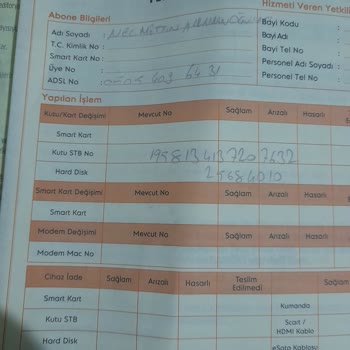 Abone Bilgileri
Hizmeti Veren Yetkili
Adı Soyadı : NECMETTİN
Bayi Kodu :
T.C. Kimlik No :
Bayi Adı :
Smart Kart No :
Bayi Tel No :
Üye No :
Personel Adı Soyadı :
ADSL No : 0505 603 64 31
Personel Tel No :
Yapılan İşlem
Kutu/Kart Değişimi Mevcut No Sağlam Arızalı Hasarlı
Smart Kart
Kutu STB No 1958134137207632
Hard Disk 25684010
Smart Kart Değişimi Mevcut No Sağlam Arızalı Hasarlı
Smart Kart
Modem Değişimi Mevcut No Sağlam Arızalı Hasarlı
Modem Mac No
Cihaz İade Sağlam Arızalı Hasarlı Teslim Edilmedi Sağlam
Smart Kart Kumanda
Kutu STB Scart / HDMI Kablo
Hard Disk eSata Kablosu